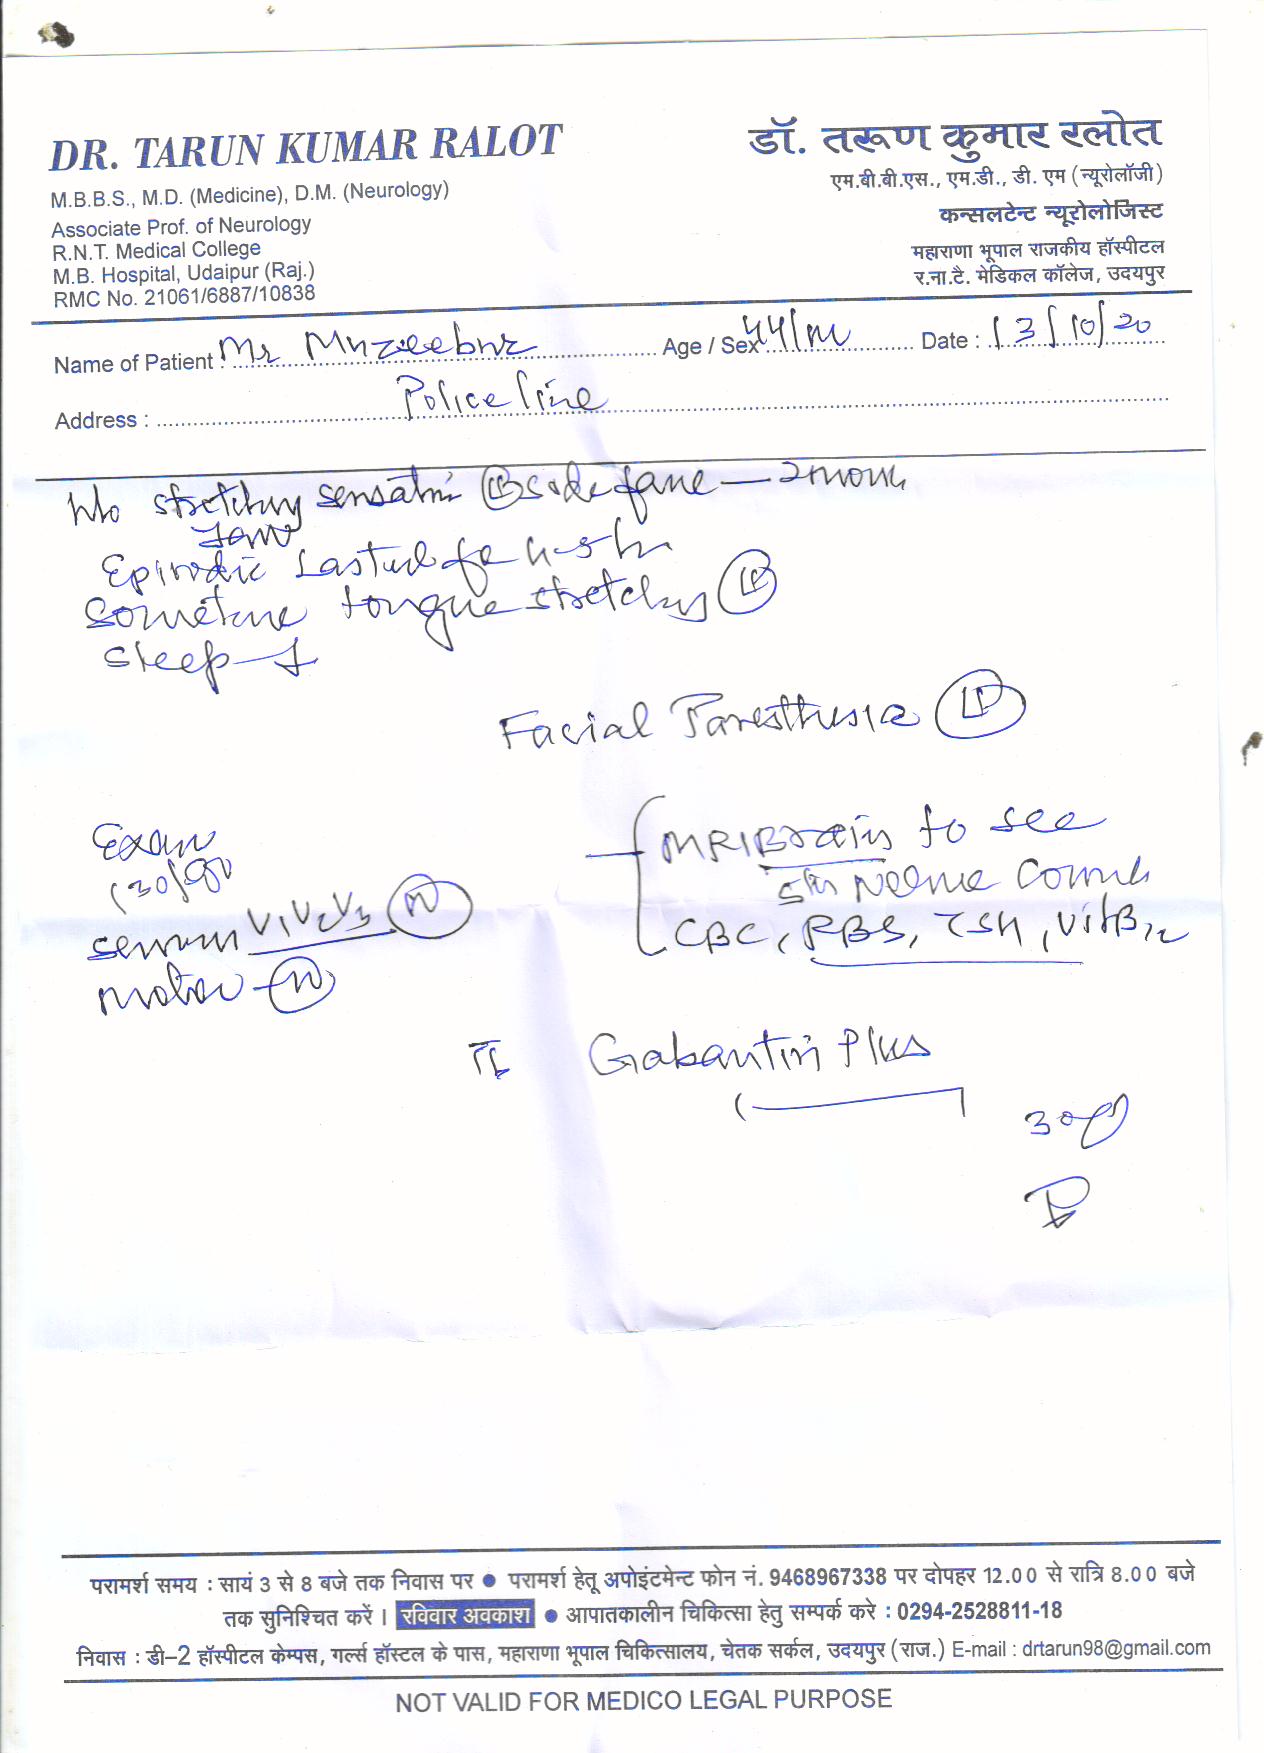 DR. TARUN KUMAR RALOT
M.B.B.S., M.D. (Medicine), D.M. (Neurology)
Associate Prof. of Neurology
R.N.T. Medical College
M.B. Hospital, Udaipur (Raj.)
RMC No. 21061/6887/10838
डॉ. तरूण कुमार रलोत
एम.बी.बी.एस., एम.डी., डी. एम (न्यूरोलॉजी)
कन्सलटेन्ट न्यूरोलोजिस्ट
महाराणा भूपाल राजकीय हॉस्पीटल
र.ना.टै. मेडिकल कॉलेज, उदयपुर
Name of Patient : Mr Age / Sex 44/M Date : 13/10/20
Address : Police line
H/o stretching sensation side face — 2 month
Jaw
Episodic
Sometime tongue stretching
Sleep
Facial Paresthesia
Exam
130/90
V1V2V3 N
motor - N
MRI Brain to see
5th Nerve
CBC, RBS, TSH, Vit B12
Gabantin Plus
परामर्श समय : सायं 3 से 8 बजे तक निवास पर ● परामर्श हेतू अपोइंटमेन्ट फोन नं. 9468967338 पर दोपहर 12.00 से रात्रि 8.00 बजे
तक सुनिश्चित करें। रविवार अवकाश ● आपातकालीन चिकित्सा हेतु सम्पर्क करे : 0294-2528811-18
निवास : डी-2 हॉस्पीटल केम्पस, गर्ल्स हॉस्टल के पास, महाराणा भूपाल चिकित्सालय, चेतक सर्कल, उदयपुर (राज.) E-mail : drtarun98@gmail.com
NOT VALID FOR MEDICO LEGAL PURPOSE